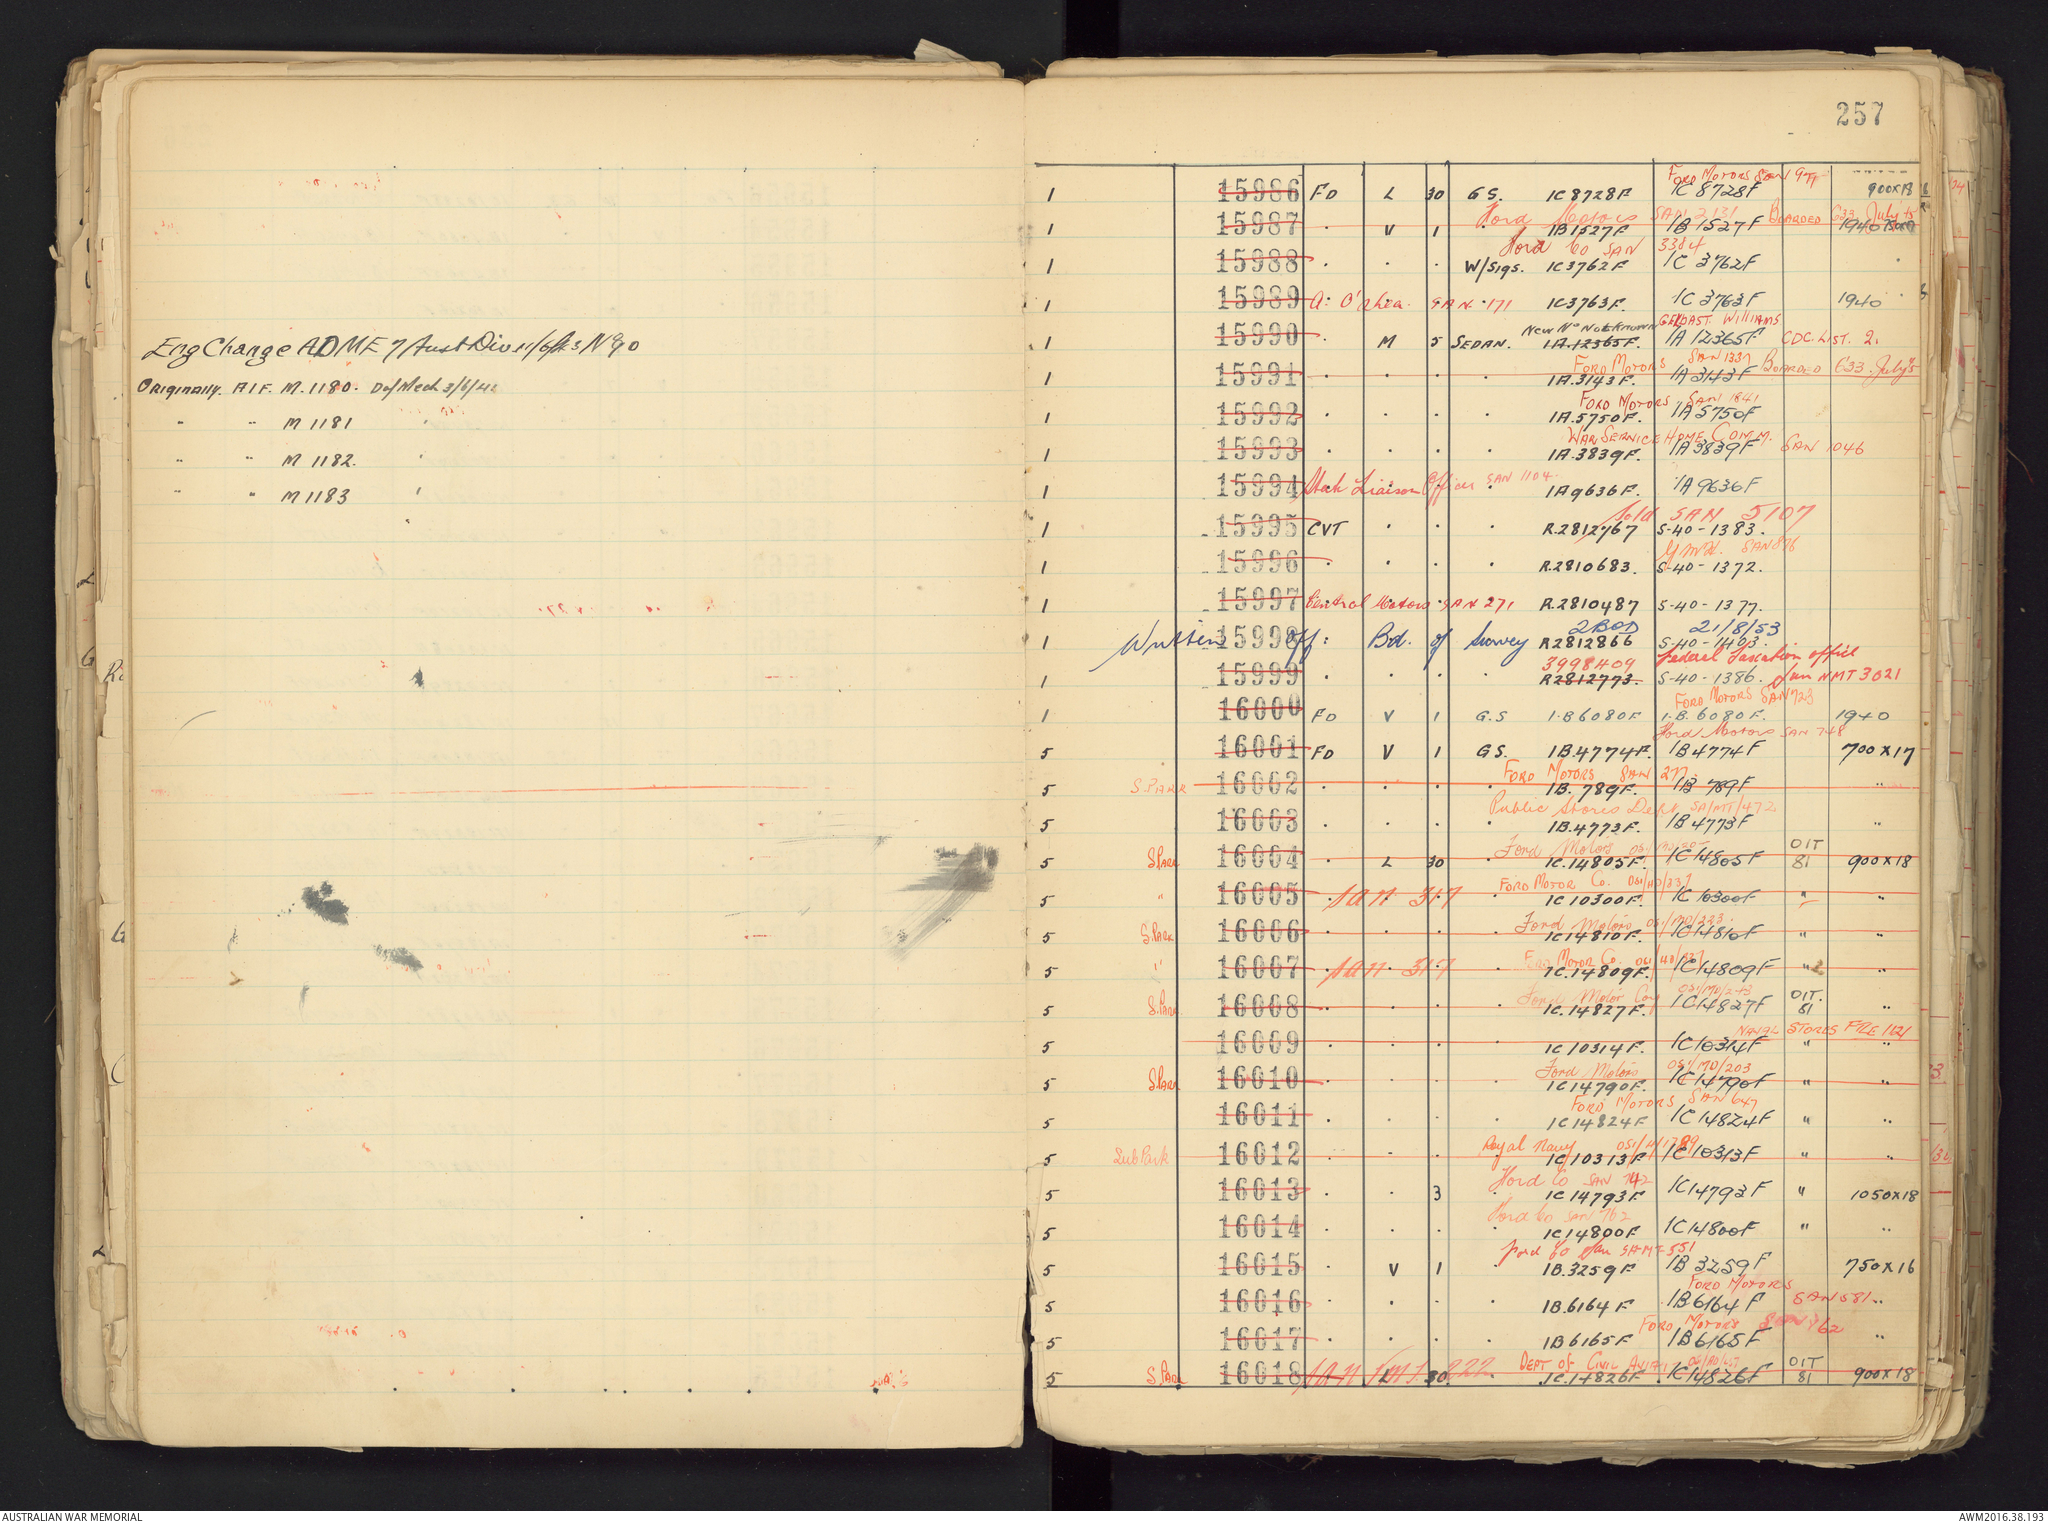 257
Eng Change ADME 7 Aust Div
Originally. AIF. M.1180. D of Mech 3/6/42
" " M 1181 "
" " M 1182. "
" " M 1183 "
Ford Motors SAN
1 15986 FD L 30 GS. 1C8728F 1C 8728F 900x18
Ford Motors SAN 2131 Boarded E33 July
1 15987 . V 1 1B1527F 1B1527F 1940
Ford Co SAN 3384
1 15988 . . . W/Sigs. 1C3762F 1C 3762F
1 15989 A. O'shea. SAN 171 1C3763F. 1C3763F 1940
New No Not Known Williams
1 15990 . M 5 SEDAN. 1A.12365F. 1A12365F CDC. LIST. 2.
Ford Motors SAN 1337 Boarded E33. July
1 15991 . . . . 1A.3143F. 1A3143F
Ford Motors SAN 1841
1 15992 . . . . 1A.5750F. 1A5750F
War Service Home Comm. SAN 1046
1 15993 . . . . 1A.3839F. 1A3839F
1 15994 Liaison Officer SAN 1104 1A9636F. 1A9636F
Sold SAN 5107
1 15995 CVT . . . R.2812767 S-40-1383.
G.M.H. SAN 876
1 15996 . . . . R.2810683. S-40-1372.
1 15997 Central Motors SAN 271 R.2810487 S-40-1377.
2BOD 21/8/53
1 Written 15998 off: Bd. of Survey R2812866 S-40-1403.
3998409 Federal Taxation office
1 15999 . . . . R2812773. S-40-1386. San NMT 3021
Ford Motors SAN 723
1 16000 FD V 1 G.S 1.B6080F 1.B.6080F. 1940
Ford Motors SAN 748
5 16001 FD V 1 GS. 1B.4774F. 1B4774F 700x17
Ford Motors SAN 277.
5 S.PARK 16002 . . . . 1B.789F. 1B 789F "
Public Stores Dept SA/MT/472
5 16003 . . . . 1B.4773F. 1B4773F "
Ford Motors
5 S.Park 16004 . L 30 . 1C.14805F. 1C14805F OIT 81 900x18
Ford Motor Co.
5 " 16005 San 317 1C10300F. 1C10300F " "
Ford Motors 051/MD/223
5 S.Park 16006 . . . . 1C14810F. 1C14810F " "
Ford Motor Co.
5 " 16007 San 317 1C.14809F. 1C14809F " "
Ford Motor Coy
5 S.Park 16008 . . . . 1C.14827F. 1C14827F OIT. 81 "
NAVAL STORES FILE
5 16009 . . . . 1C10314F. 1C10314F " "
Ford Motors 051/MD/203
5 S.Park 16010 . . . 1C14790F. 1C14790F " "
Ford Motors SAN 647
5 16011 . . . . 1C14824F 1C14824F " "
Royal Navy
5 Sub Park 16012 . . . . 1C10313F 1C10313F " "
Ford Co SAN 742
5 16013 . . 3 . 1C14793F 1C14793F " 1050x18
Ford Co SAN 762
5 16014 . . . . 1C14800F 1C14800F " "
Ford Co San SAMT 551
5 16015 . V 1 . 1B.3259F 1B3259F 750x16
Ford Motors
5 16016 . . . . 1B.6164F 1B6164F SAN 581 "
Ford Motors
5 16017 . . . . 1B6165F 1B6165F "
Dept of Civil
5 S.Park 16018 San 222 1C.14826F 1C14826F OIT 81 900x18
AUSTRALIAN WAR MEMORIAL
AWM2016.38.193